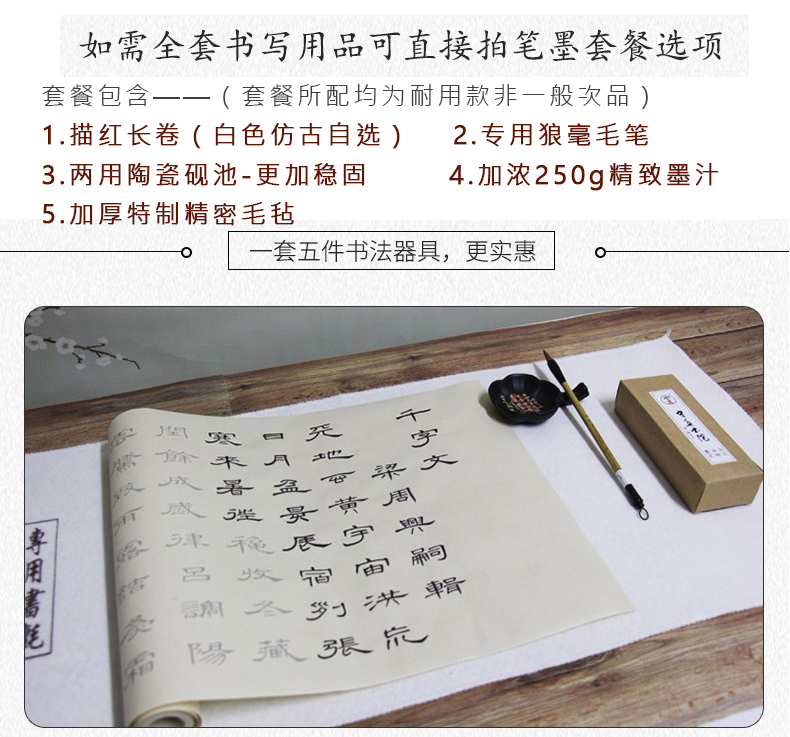 如需全套书写用品可直接拍笔墨套餐选项
套餐包含——（套餐所配均为耐用款非一般次品）
1.描红长卷（白色仿古自选） 2.专用狼毫毛笔
3.两用陶瓷砚池-更加稳固 4.加浓250g精致墨汁
5.加厚特制精密毛毡
一套五件书法器具，更实惠
千字文
梁周興嗣輯
天地玄黄宇宙洪荒
日月盈昃辰宿列張
寒來暑徃秋收冬藏
閏餘成歲律呂調陽
雲騰致雨露結為霜
專用書氈